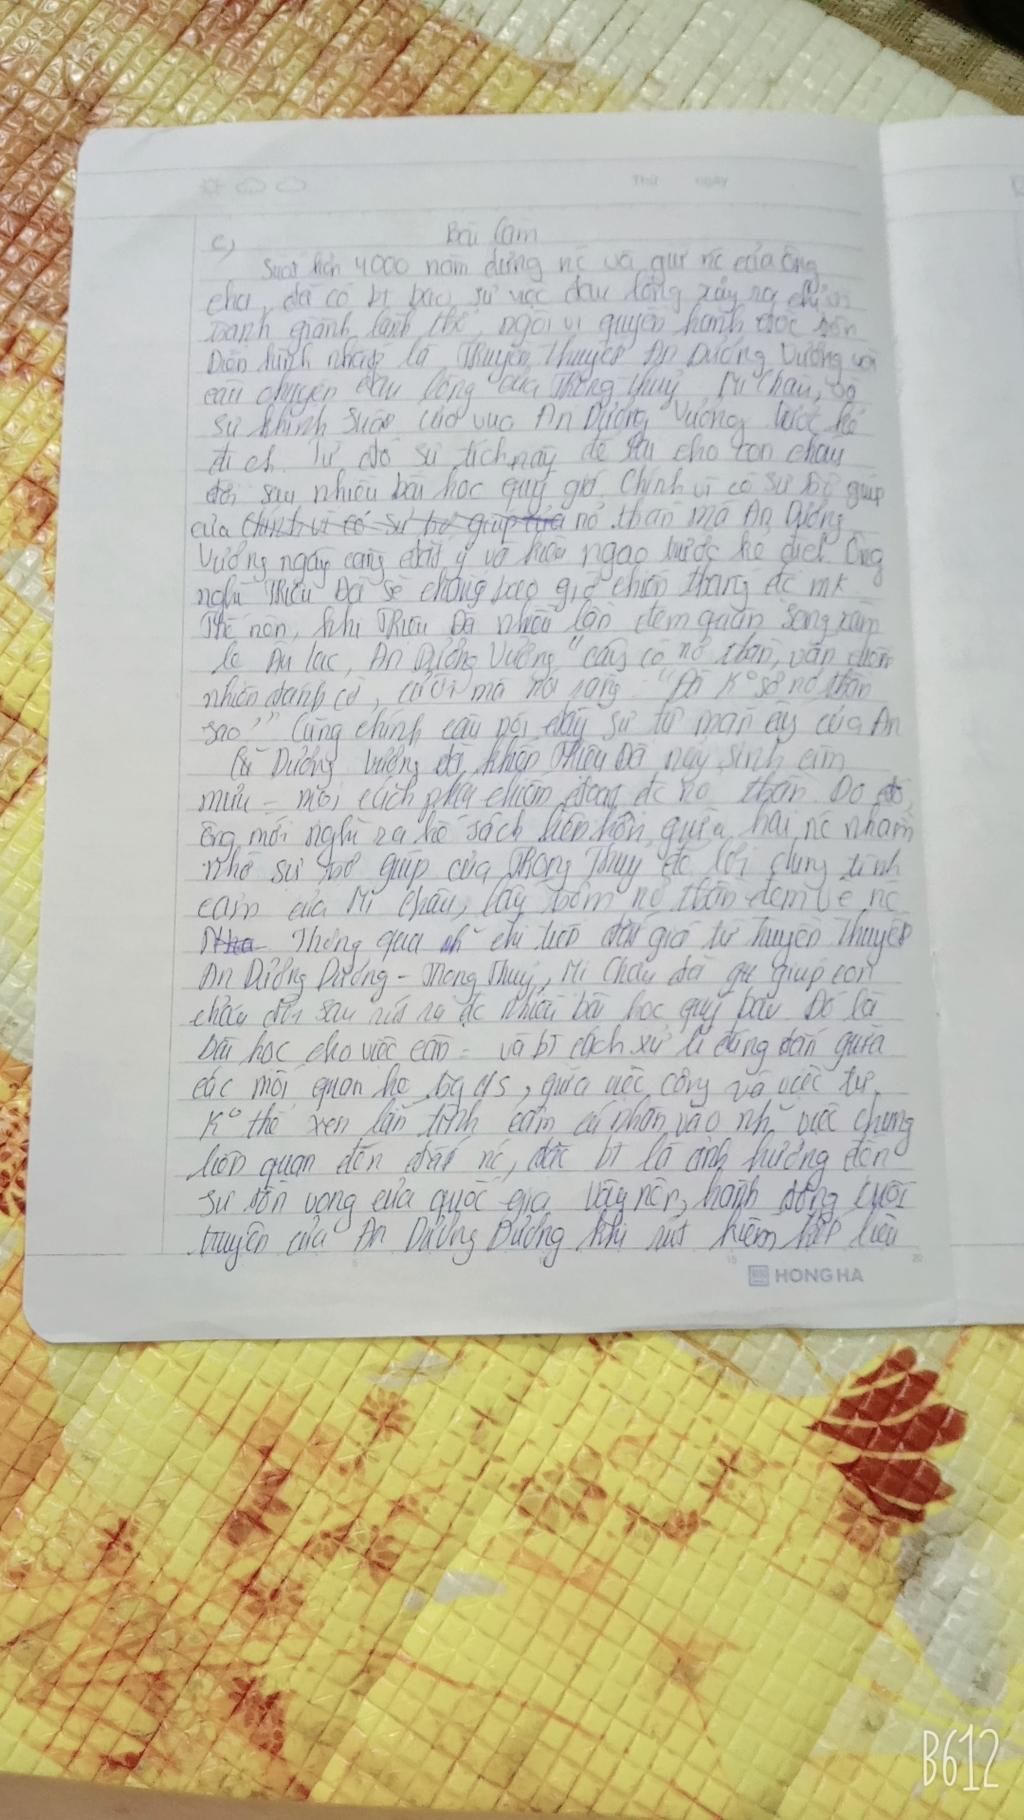 Thứ ngày
c) Bài làm
Suốt hơn 4000 năm dựng nc và giữ nc của ông
cha, đã có bt bao sự việc đau lòng xảy ra chỉ vì
tranh giành lãnh thổ, ngôi vị quyền hành độc tôn
Điển hình nhất là Truyền Thuyết An Dương Vương với
câu chuyện đau lòng của Trọng Thuỷ Mị Châu, và
sự khinh suất của vua An Dương Vương trước kẻ
địch. Từ đó sự tích này để lại cho con cháu
đời sau nhiều bài học quý giá. Chính vì có sự trợ giúp
của chính vì có sự trợ giúp của nỏ thần mà An Dương
Vương ngày càng đắc ý và kiêu ngạo trước kẻ địch. Ông
nghĩ Triệu Đà sẽ chẳng bao giờ chiến thắng đc mk
Thế nên, khi Triệu Đà nhiều lần đem quân sang xâm
lc Âu lạc, An Dương Vương "cậy có nỏ thần, vẫn điềm
nhiên đánh cờ, cười mà nói rằng "Đà K° sợ nỏ thần
sao?" Cũng chính câu nói đầy sự tự mãn ấy của An
Dương Vương đã khiến Triệu Đà nảy sinh âm
mưu - mọi cách phải chiếm đoạt đc nỏ thần. Do đó,
ông mới nghĩ ra kế sách liên hôn giữa hai nc nhằm
nhờ sự trợ giúp của Trọng Thuỷ để lợi dụng tình
cảm của Mị Châu, lấy trộm nỏ thần đem về nc
Thông qua nh~ chi tiết đắt giá từ truyền Thuyết
An Dương Dương - Trọng Thuỷ, Mị Châu đã giúp con
cháu đời sau rút ra đc nhiều bài học quý báu. Đó là
bài học cho việc cần - và bt cách xử lí đúng đắn giữa
các mối quan hệ trg c/s, giữa việc công và việc tư,
K° thể xen lẫn tình cảm cá nhân vào nh~ việc chung
liên quan đến đất nc, đặc bt là ảnh hưởng đến
sự tồn vong của quốc gia Vậy nên, hành động cuối
truyện của An Dương Dương khi rút kiếm kết liễu
HONG HA
B612